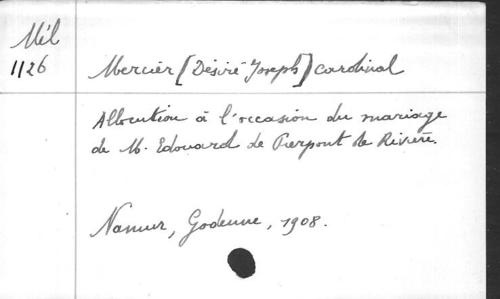 Mél
1126
Mercier [Désiré Joseph] cardinal
Allocution à l'occasion du mariage
de M. Edouard de Pierpont de Rivière.
Namur, Godenne, 1908.